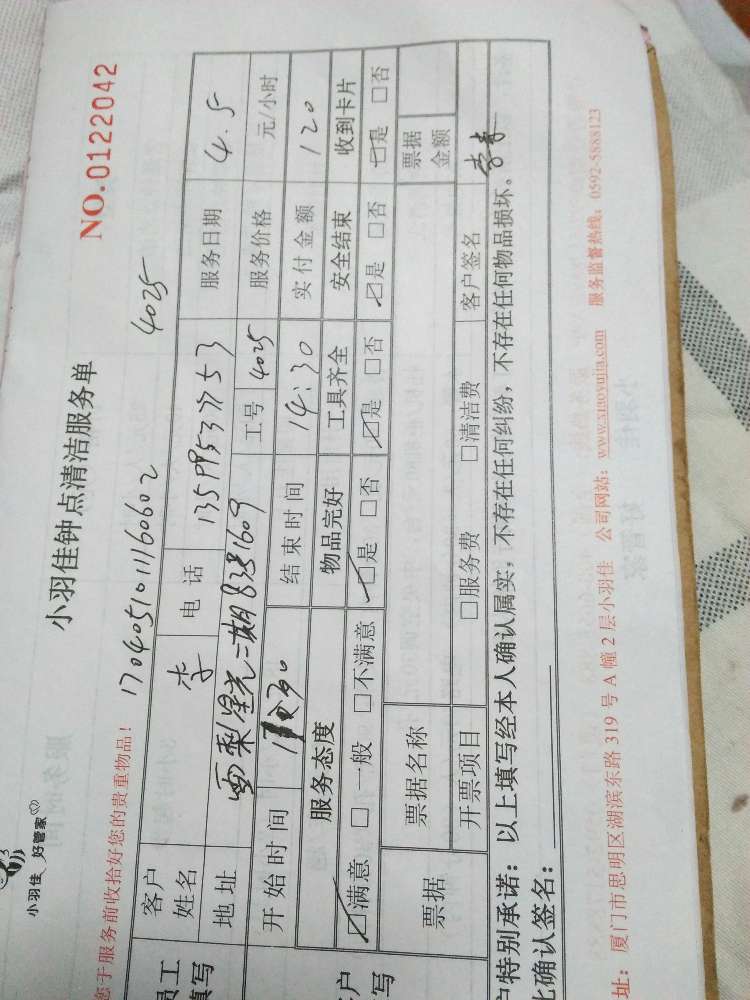 小羽佳 好管家
小羽佳钟点清洁服务单
NO.0122042
您于服务前收拾好您的贵重物品！
170405101160602 4025
员工 填写
客户姓名 李 电话 服务日期 4.5
地址 二期 1609 工号 4025 服务价格 元/小时
开始时间 结束时间 14:30 实付金额 120
服务态度 物品完好 工具齐全 安全结束 收到卡片
☑满意 □一般 □不满意 ☑是 □否 ☑是 □否 ☑是 □否 ☑是 □否
票据 票据名称 票据金额
开票项目 □服务费 □清洁费 客户签名
户特别承诺：以上填写经本人确认属实，不存在任何纠纷，不存在任何物品损坏。
此确认签名：
址：厦门市思明区湖滨东路 319 号 A 幢 2 层小羽佳 公司网站：www.xiaoyujia.com 服务监督热线：0592-5888123